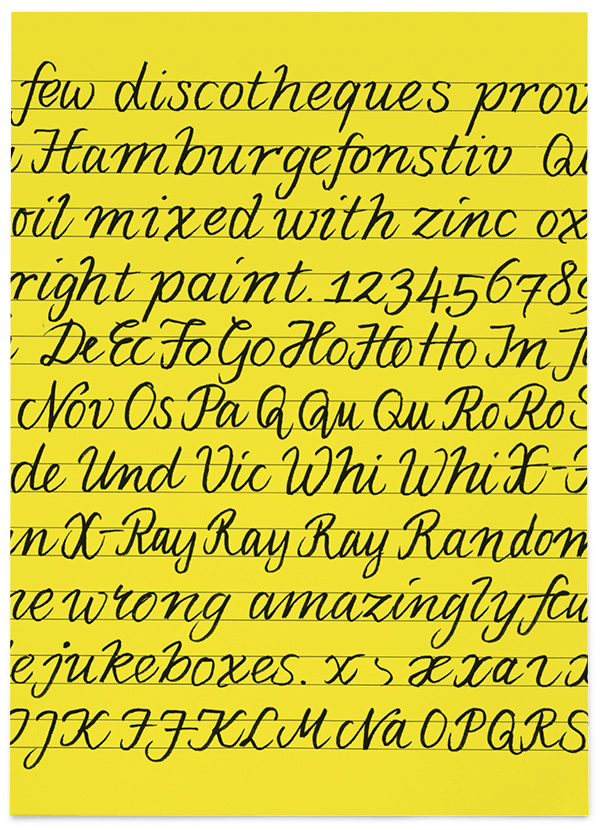 few discotheques prov
Hamburgefonstiv Qu
oil mixed with zinc ox
right paint. 123456789
De Ec Fo Go Ho Ho Ho In J
Nov Os Pa Q Qu Qu Ro Ro S
de Und Vic Whi Whi X-
n X-Ray Ray Ray Random
he wrong amazingly few
e jukeboxes. x s æ x a r
IJK FJ-KLM Na OPQRS